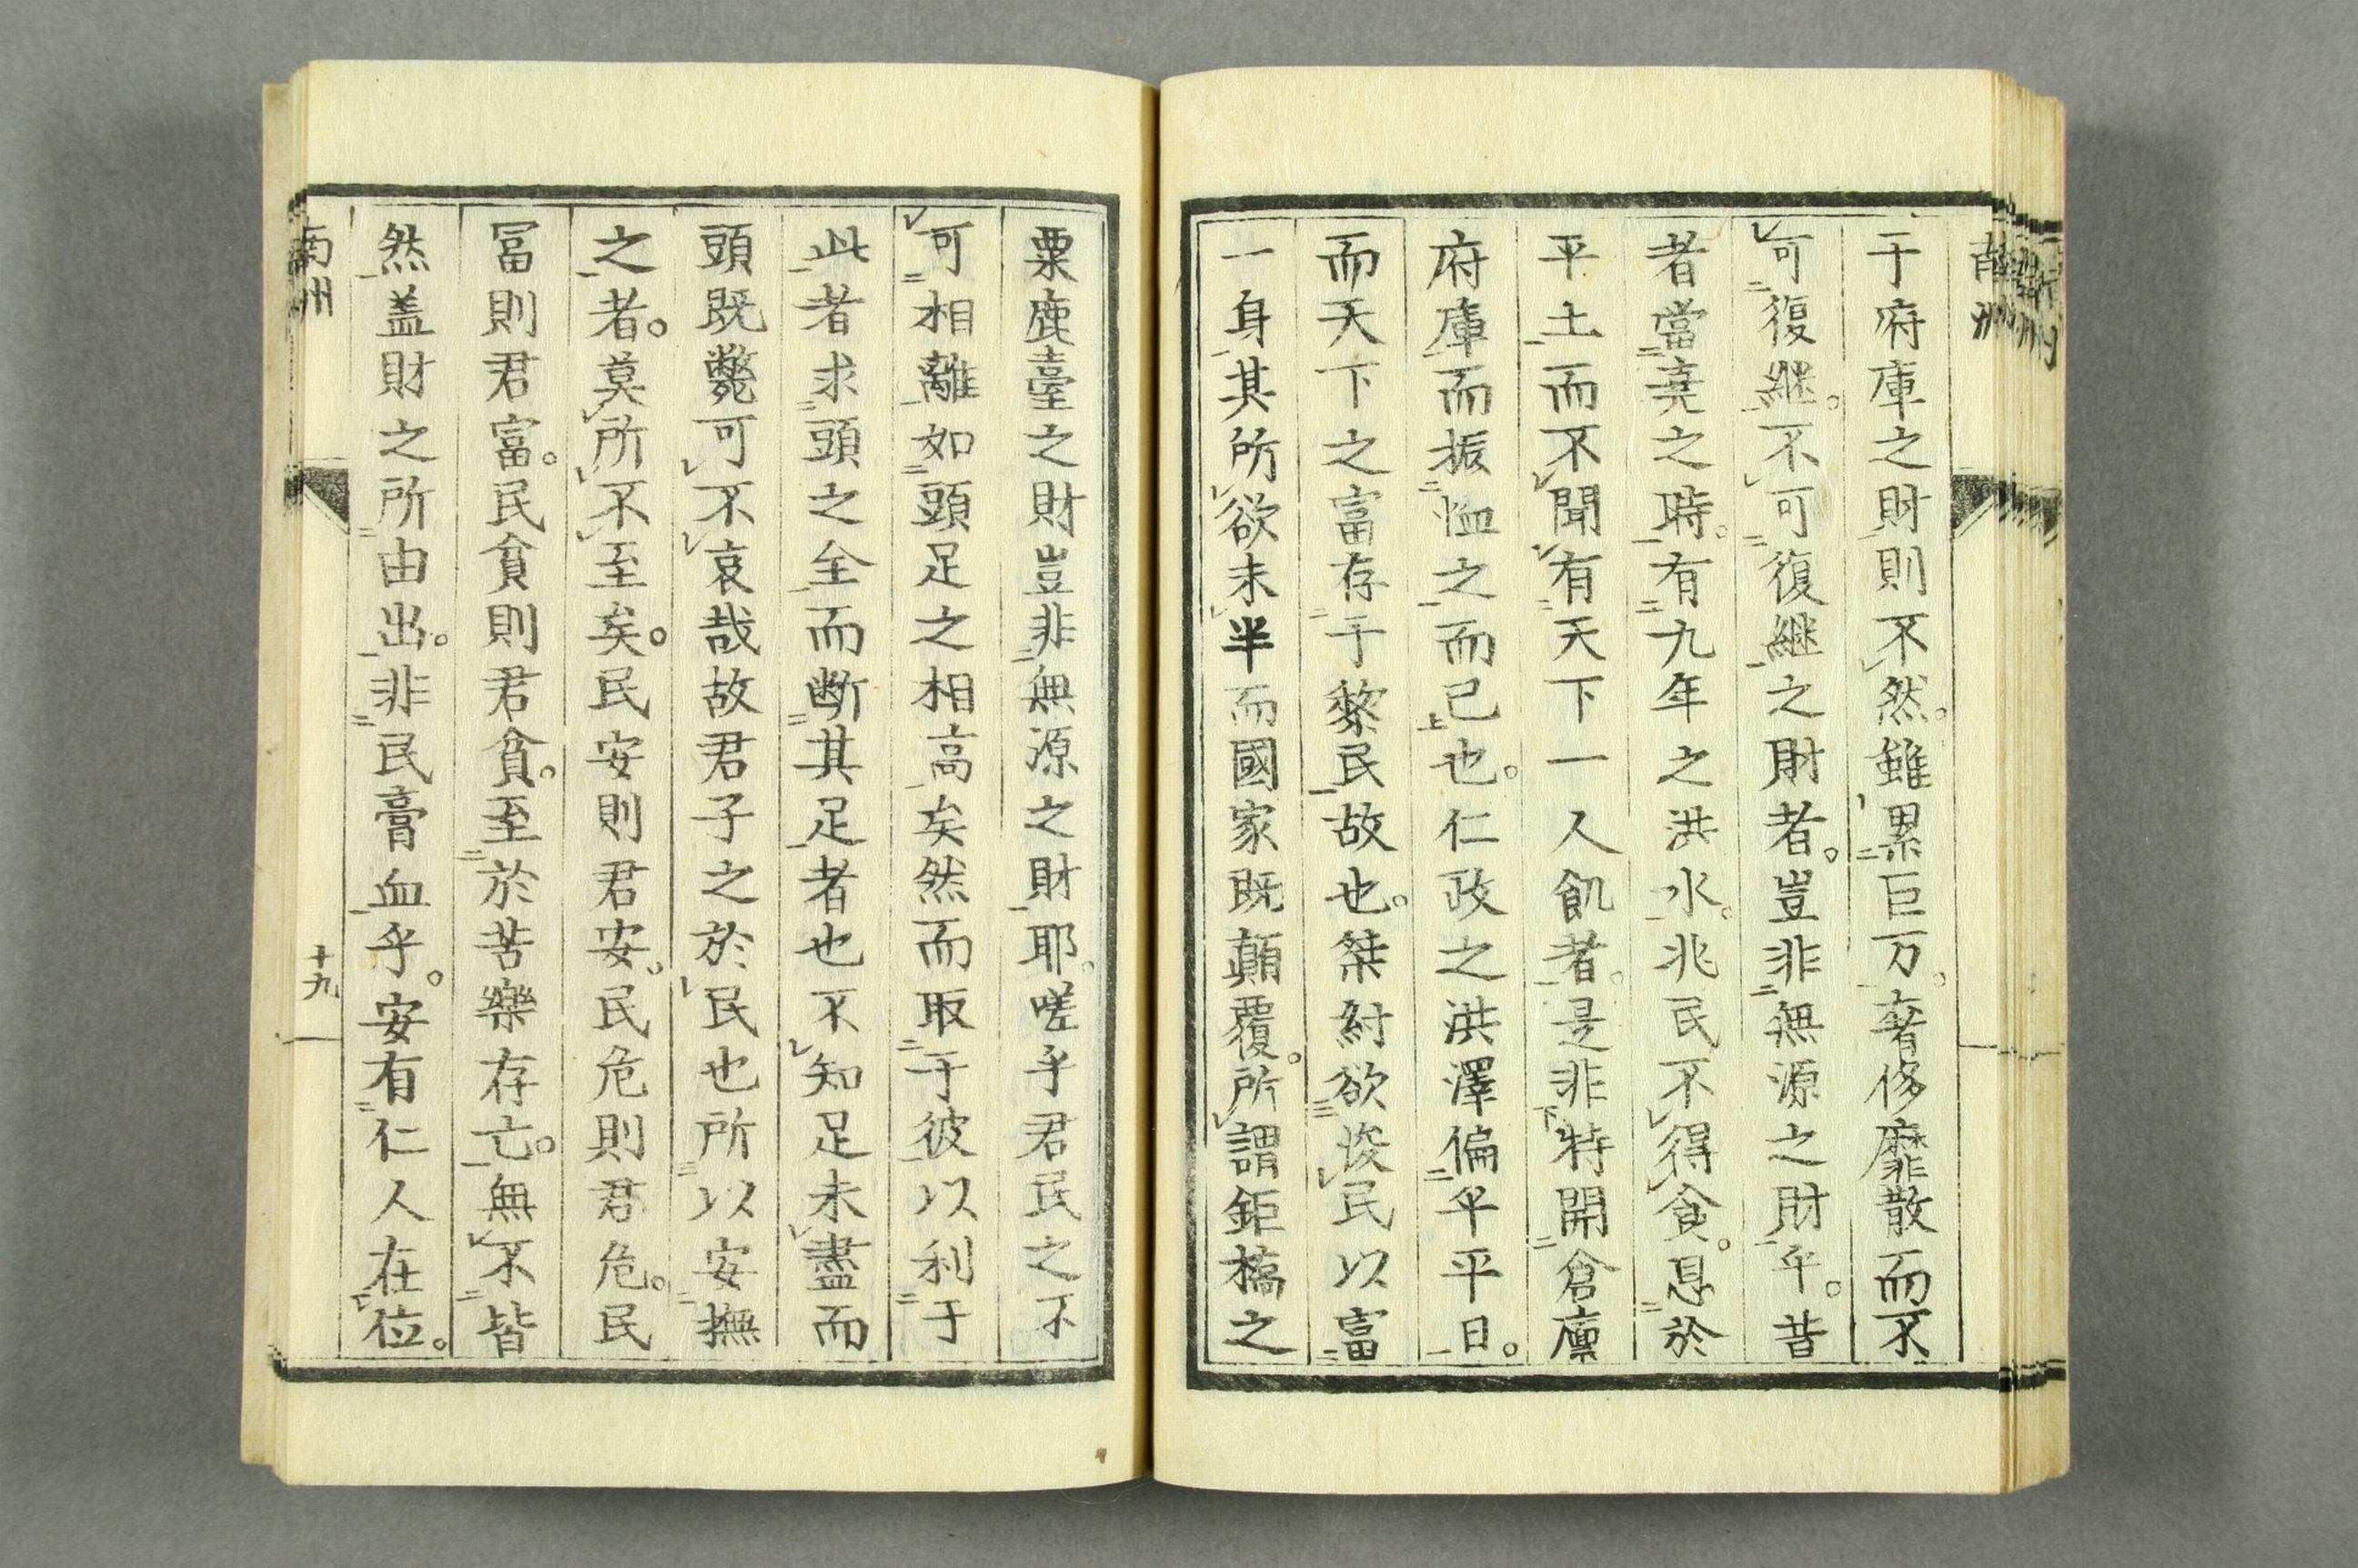 于府庫之財則不然。雖累巨万。奢侈靡散而不
可復継。不可復継之財者。豈非無源之財乎。昔
者當堯之時。有九年之洪水。兆民不得食。思於
平土而不聞有天下一人飢者。是非特開倉廩
府庫而振恤之而已也。仁政之洪澤偏乎平日。
而天下之富存于黎民故也。桀紂欲浚民以富
一身其所欲未半而國家既顛覆。所謂鉅橋之
粟鹿臺之財豈非無源之財耶。嗟乎君民之不
可相離如頭足之相高矣然而取于彼以利于
此者求頭之全而断其足者也不知足未盡而
頭既斃可不哀哉故君子之於民也所以安撫
之者。莫所不至矣。民安則君安。民危則君危。民
冨則君富。民貧則君貧。至於苦樂存亡。無不皆
然盖財之所由出。非民膏血乎。安有仁人在位。
南州
十九